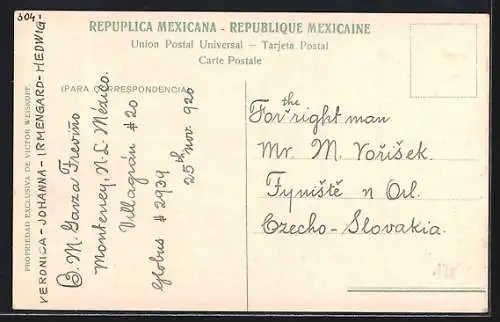 304-
REPUPLICA MEXICANA - REPUBLIQUE MEXICAINE
Union Postal Universal — Tarjeta Postal
Carte Postale
(PARA CORRESPONDENCIA)
PROPRIEDAD EXCLUSIVA DE VICTOR WEISKOPF.
VERONICA - JOHANNA - IRMENGARD - HEDWIG -
B. M. Garza Treviño
Monterrey, N. L. México.
Villagrán # 20
Globus # 2939
25th nov. 920
the
For right man
Mr. M. Voříšek.
Týniště n Orl.
Czecho-Slovakia.